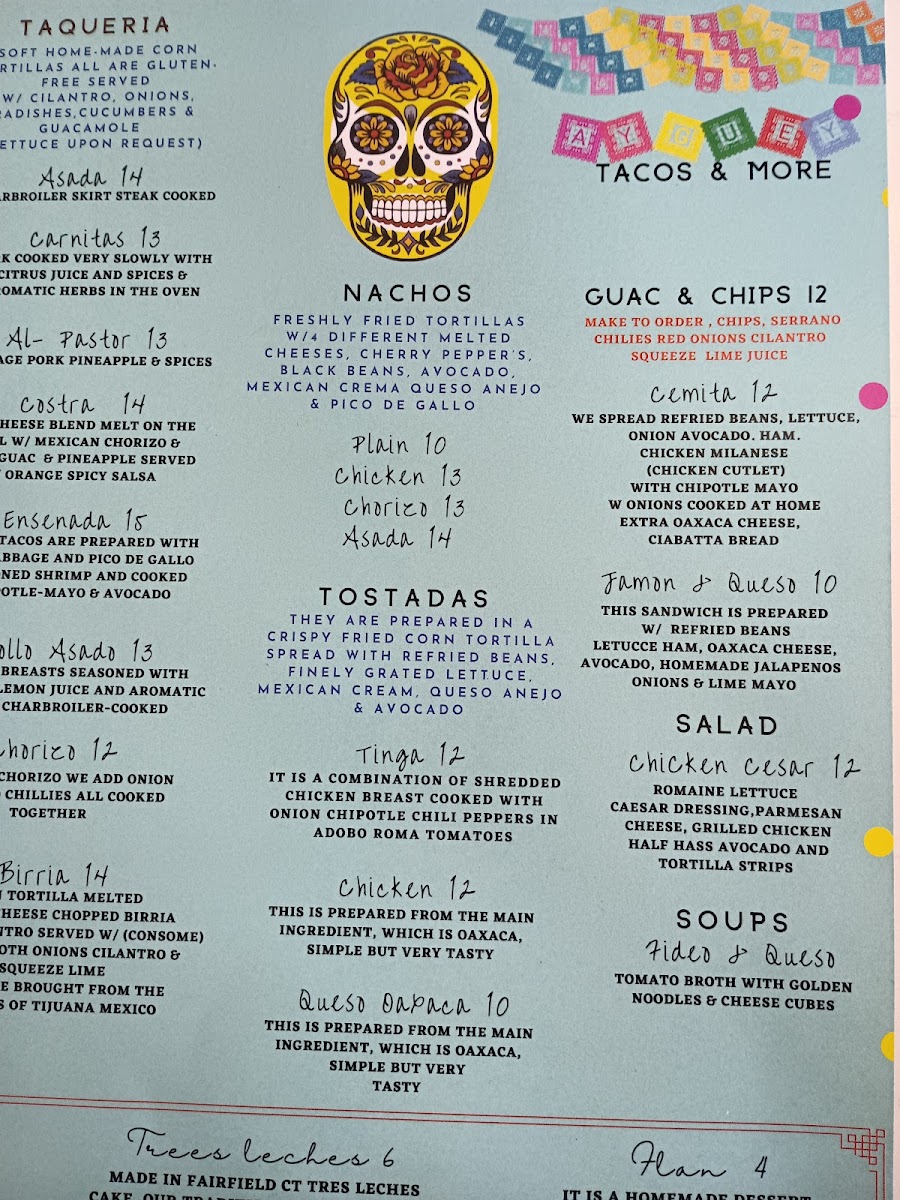 TAQUERIA
SOFT HOME-MADE CORN
ALL ARE GLUTEN-
FREE SERVED
W/ CILANTRO, ONIONS,
CUCUMBERS &
GUACAMOLE
UPON REQUEST)
Asada 14
SKIRT STEAK COOKED
Carnitas 13
COOKED VERY SLOWLY WITH
CITRUS JUICE AND SPICES &
HERBS IN THE OVEN
Al- Pastor 13
PORK PINEAPPLE & SPICES
Costra 14
BLEND MELT ON THE
W/ MEXICAN CHORIZO &
GUAC & PINEAPPLE SERVED
ORANGE SPICY SALSA
Ensenada 15
TACOS ARE PREPARED WITH
AND PICO DE GALLO
SHRIMP AND COOKED
& AVOCADO
Asado 13
BREASTS SEASONED WITH
LEMON JUICE AND AROMATIC
CHARBROILER-COOKED
Chorizo 12
CHORIZO WE ADD ONION
CHILLIES ALL COOKED
TOGETHER
Birria 14
TORTILLA MELTED
CHOPPED BIRRIA
SERVED W/ (CONSOME)
ONIONS CILANTRO &
SQUEEZE LIME
BROUGHT FROM THE
OF TIJUANA MEXICO
NACHOS
FRESHLY FRIED TORTILLAS
W/4 DIFFERENT MELTED
CHEESES, CHERRY PEPPER'S,
BLACK BEANS, AVOCADO,
MEXICAN CREMA QUESO ANEJO
& PICO DE GALLO
Plain 10
Chicken 13
Chorizo 13
Asada 14
TOSTADAS
THEY ARE PREPARED IN A
CRISPY FRIED CORN TORTILLA
SPREAD WITH REFRIED BEANS,
FINELY GRATED LETTUCE,
MEXICAN CREAM, QUESO ANEJO
& AVOCADO
Tinga 12
IT IS A COMBINATION OF SHREDDED
CHICKEN BREAST COOKED WITH
ONION CHIPOTLE CHILI PEPPERS IN
ADOBO ROMA TOMATOES
Chicken 12
THIS IS PREPARED FROM THE MAIN
INGREDIENT, WHICH IS OAXACA,
SIMPLE BUT VERY TASTY
Queso Oaxaca 10
THIS IS PREPARED FROM THE MAIN
INGREDIENT, WHICH IS OAXACA,
SIMPLE BUT VERY
TASTY
AY GUEY
TACOS & MORE
GUAC & CHIPS 12
MAKE TO ORDER , CHIPS, SERRANO
CHILIES RED ONIONS CILANTRO
SQUEEZE LIME JUICE
Cemita 12
WE SPREAD REFRIED BEANS, LETTUCE,
ONION AVOCADO. HAM.
CHICKEN MILANESE
(CHICKEN CUTLET)
WITH CHIPOTLE MAYO
W ONIONS COOKED AT HOME
EXTRA OAXACA CHEESE,
CIABATTA BREAD
Jamon & Queso 10
THIS SANDWICH IS PREPARED
W/ REFRIED BEANS
LETUCCE HAM, OAXACA CHEESE,
AVOCADO, HOMEMADE JALAPENOS
ONIONS & LIME MAYO
SALAD
Chicken Cesar 12
ROMAINE LETTUCE
CAESAR DRESSING,PARMESAN
CHEESE, GRILLED CHICKEN
HALF HASS AVOCADO AND
TORTILLA STRIPS
SOUPS
Fideo & Queso
TOMATO BROTH WITH GOLDEN
NOODLES & CHEESE CUBES
Trees leches 6
MADE IN FAIRFIELD CT TRES LECHES
Flan 4
IT IS A HOMEMADE DESSERT